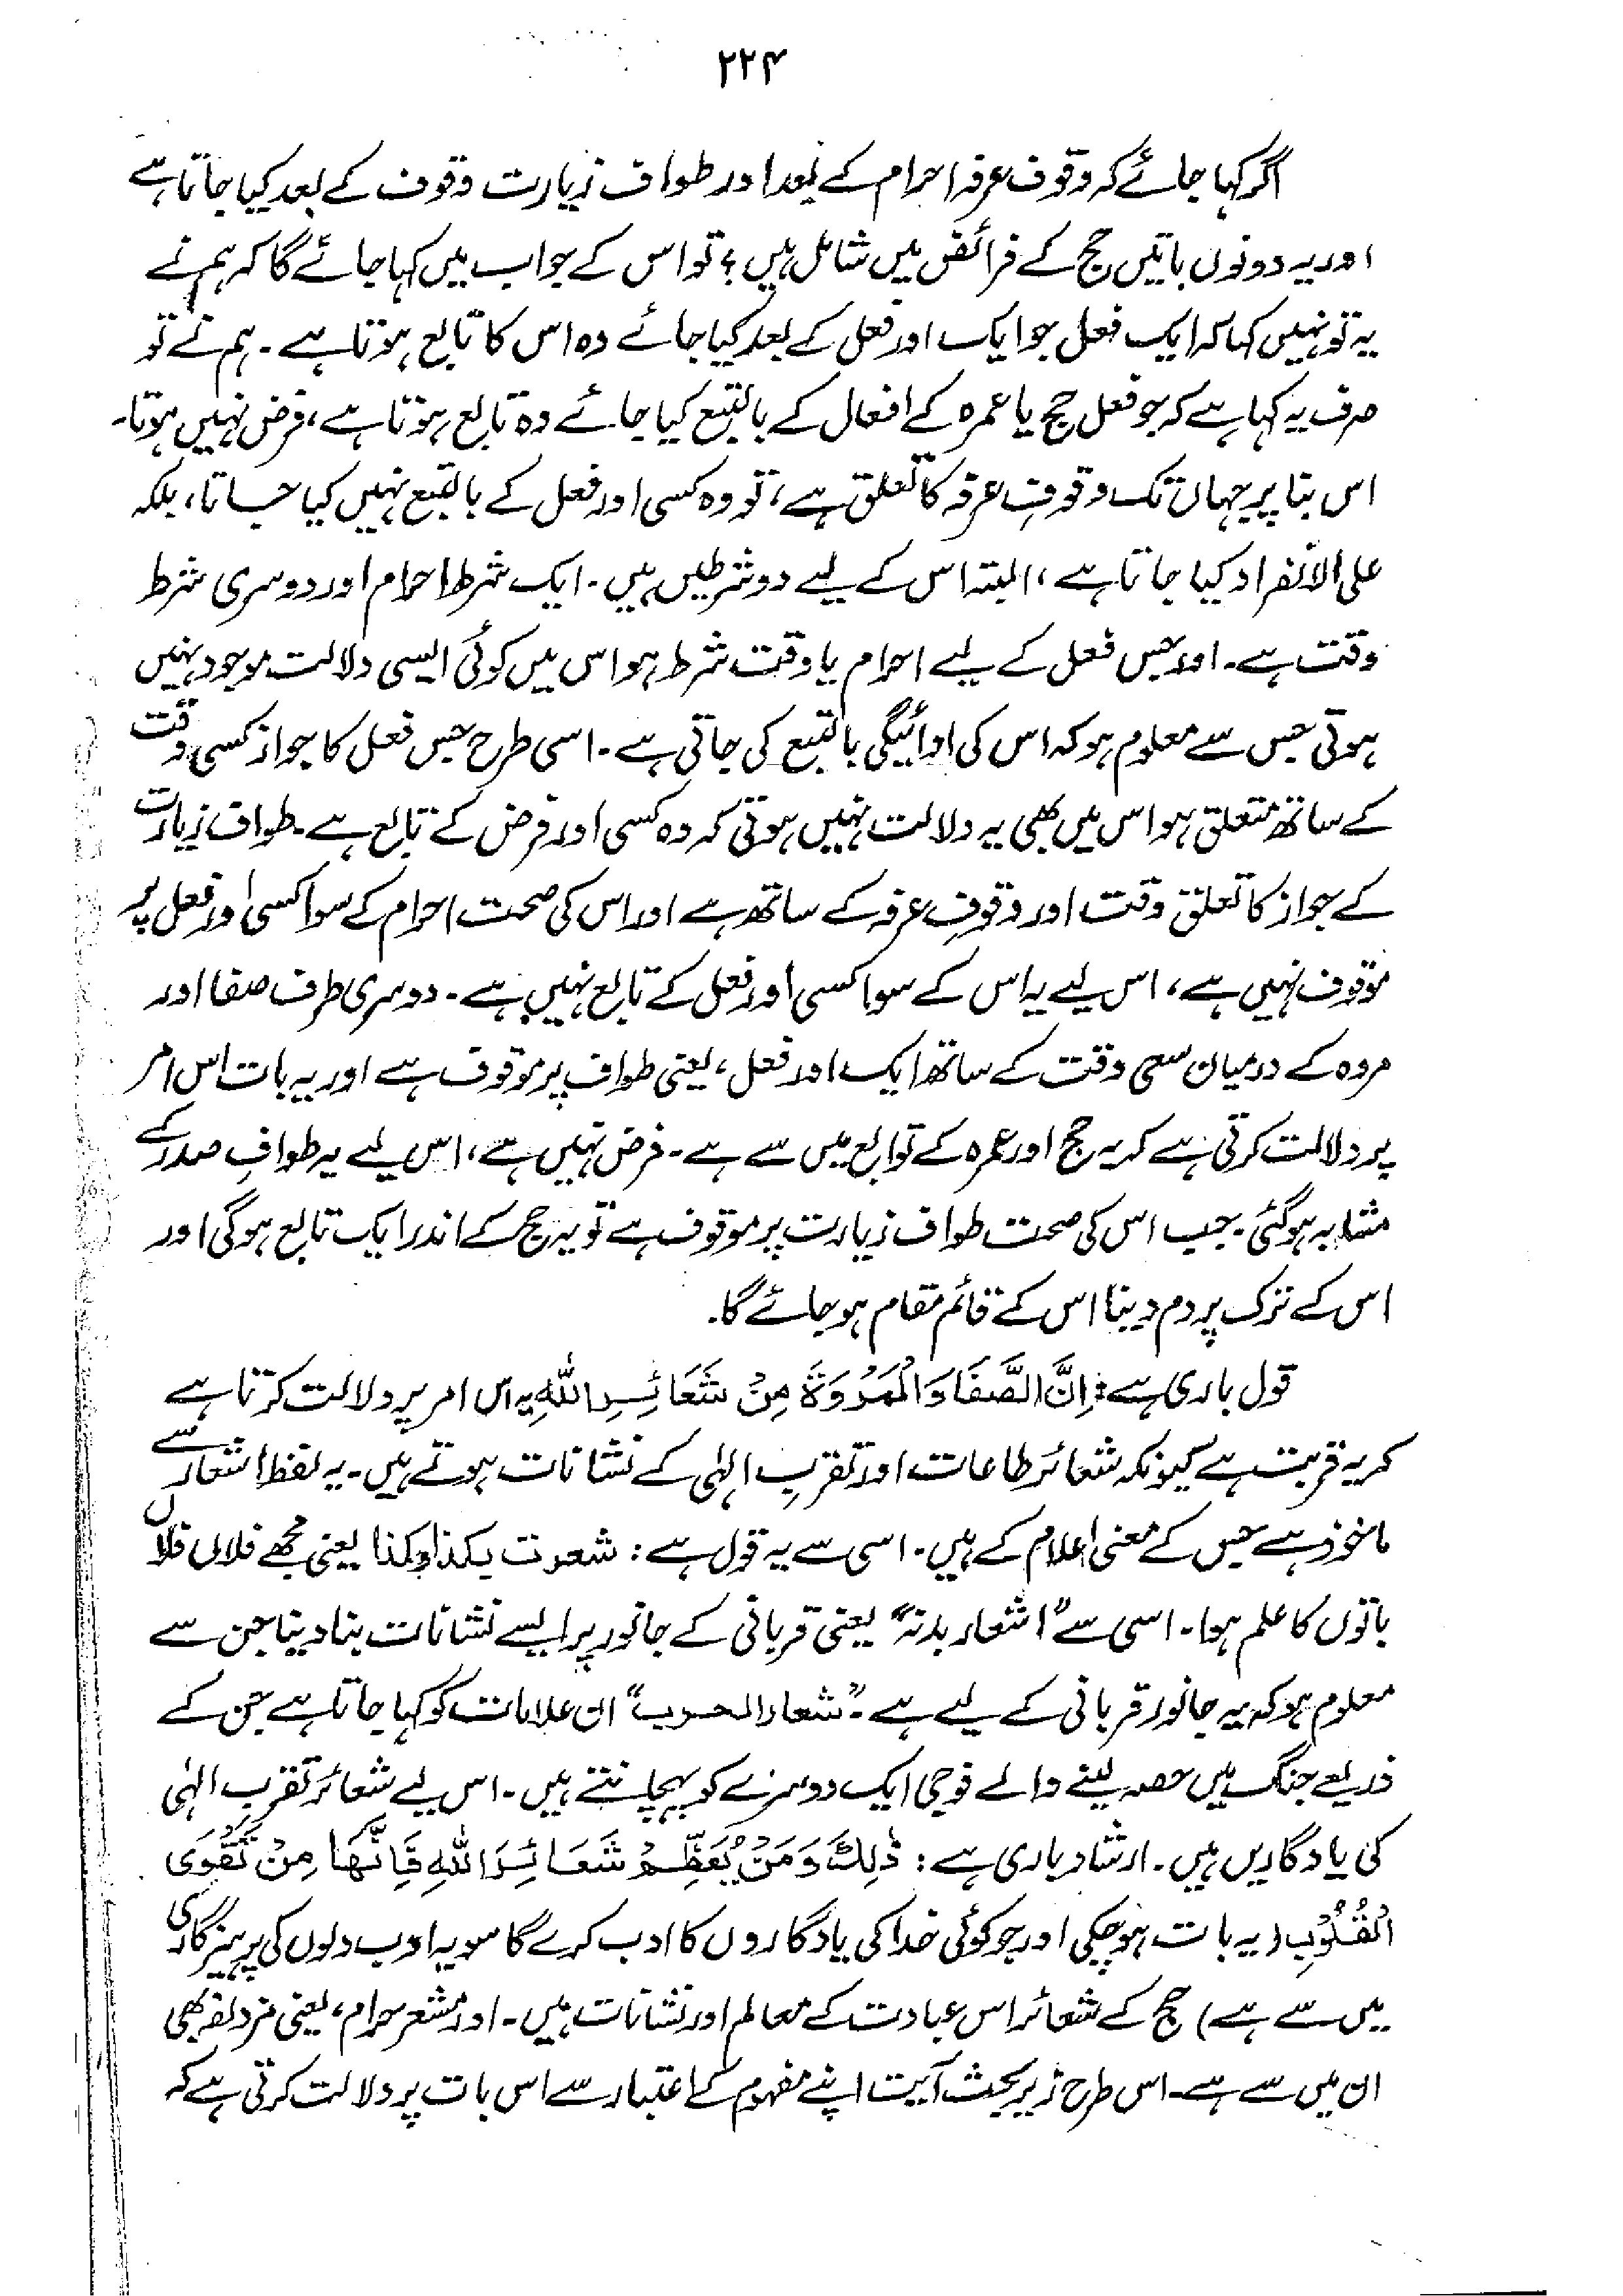 ۲۲۴
اگر کہا جائے کہ وقوف عرفہ احرام کے بعد اور طواف زیارت وقوف کے بعد کیا جاتا ہے
اور یہ دونوں باتیں حج کے فرائض میں شامل ہیں؟ تو اس کے جواب میں کہا جائے گا کہ ہم نے
یہ تو نہیں کہا کہ ایک فعل جو ایک اور فعل کے بعد کیا جائے وہ اس کا تابع ہوتا ہے۔ ہم نے تو
صرف یہ کہا ہے کہ جو فعل حج یا عمرہ کے افعال کے بالتبع کیا جائے وہ تابع ہوتا ہے، فرض نہیں ہوتا۔
اس بنا پر جہاں تک وقوفِ عرفہ کا تعلق ہے، تو وہ کسی اور فعل کے بالتبع نہیں کیا جاتا، بلکہ
علی الانفراد کیا جاتا ہے، البتہ اس کے لیے دو شرطیں ہیں۔ ایک شرط احرام اور دوسری شرط
وقت ہے۔ اور جس فعل کے لیے احرام یا وقت شرط ہو اس میں کوئی ایسی دلالت موجود نہیں
ہوتی جس سے معلوم ہو کہ اس کی ادائیگی بالتبع کی جاتی ہے۔ اسی طرح جس فعل کا جواز کسی وقت
کے ساتھ متعلق ہو اس میں بھی یہ دلالت نہیں ہوتی کہ وہ کسی اور فرض کے تابع ہے۔ طواف زیارت
کے جواز کا تعلق وقت اور وقوفِ عرفہ کے ساتھ ہے اور اس کی صحت احرام کے سوا کسی اور فعل پر
موقوف نہیں ہے، اس لیے یہ اس کے سوا کسی اور فعل کے تابع نہیں ہے۔ دوسری طرف صفا اور
مروہ کے درمیان سعی وقت کے ساتھ ایک اور فعل، یعنی طواف پر موقوف ہے اور یہ بات اس امر
پر دلالت کرتی ہے کہ یہ حج اور عمرہ کے توابع میں سے ہے۔ فرض نہیں ہے، اس لیے یہ طوافِ صدر کے
مشابہ ہوگئی۔ جب اس کی صحت طواف زیارت پر موقوف ہے تو یہ حج کے اندر ایک تابع ہوگی اور
اس کے ترک پر دم دینا اس کے قائم مقام ہو جائے گا۔
قول باری ہے: اِنَّ الصَّفَا وَالْمَرْوَةَ مِنْ شَعَائِرِ اللّٰهِ یہ اس امر پر دلالت کرتا ہے
کہ یہ قربت ہے کیونکہ شعائر طاعات اور تقربِ الٰہی کے نشانات ہوتے ہیں۔ یہ لفظ اشعار سے
ماخوذ ہے جس کے معنی اعلام کے ہیں۔ اسی سے یہ قول ہے: شعرت بکذا وکذا یعنی مجھے فلاں فلاں
باتوں کا علم ہوا۔ اسی سے "اشعار بدنہ" یعنی قربانی کے جانور پر ایسے نشانات بنا دینا جن سے
معلوم ہو کہ یہ جانور قربانی کے لیے ہے۔ "شعار الحرب" ان علامات کو کہا جاتا ہے جن کے
ذریعے جنگ میں حصہ لینے والے فوجی ایک دوسرے کو پہچانتے ہیں۔ اس لیے شعائر تقرب الٰہی
کی یادگاریں ہیں۔ ارشاد باری ہے: ذٰلِكَ وَمَنْ يُعَظِّمْ شَعَائِرَ اللّٰهِ فَاِنَّهَا مِنْ تَقْوَى
الْقُلُوْبِ (یہ بات ہو چکی اور جو کوئی خدا کی یادگاروں کا ادب کرے گا سو یہ ادب دلوں کی پرہیزگاری
میں سے ہے) حج کے شعائر اس عبادت کے معالم اور نشانات ہیں۔ اور مشعر حرام، یعنی مزدلفہ بھی
ان میں سے ہے۔ اس طرح زیر بحث آیت اپنے مفہوم کے اعتبار سے اس بات پر دلالت کرتی ہے کہ